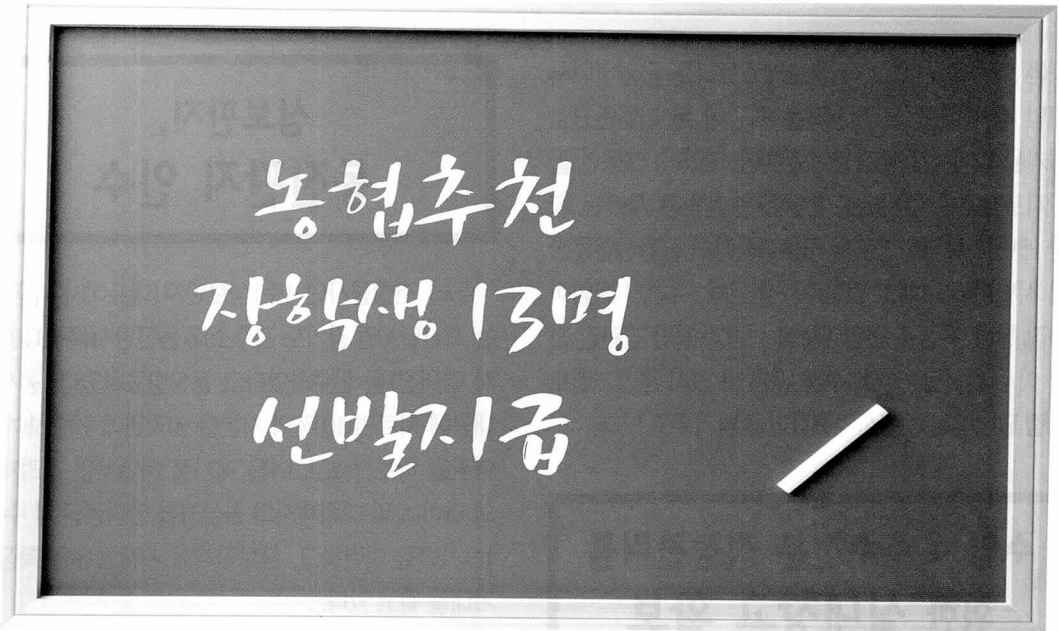 농협추천
장학생 13명
선발지급